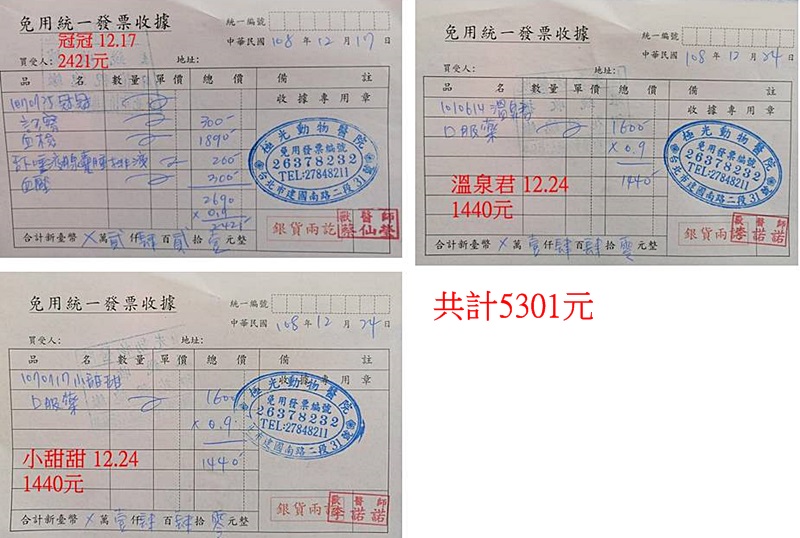 免用統一發票收據
統一編號
冠冠 12.17
中華民國 108 年 12 月 17 日
2421元
買受人：
地址：
品 名 數量 單價 總 價 備 註
收據專用章
1070175 冠冠
診察 300
血檢 1890
260
血壓 300
2690
x 0.9
2421
極光動物醫院
免用發票編號
26378232
TEL:27848211
台北市建國南路二段31號
銀貨兩訖
獸醫師
蔡仙榮
合計新臺幣 X 萬 貳 仟 肆 百 貳 拾 壹 元整
免用統一發票收據
統一編號
中華民國 108 年 12 月 24 日
買受人：
地址：
品 名 數量 單價 總 價 備 註
收據專用章
1010614 溫泉君
口服藥 1600
x 0.9
1440
極光動物醫院
免用發票編號
26378232
TEL:27848211
台北市建國南路二段31號
溫泉君 12.24
1440元
銀貨兩訖
獸醫師
李諾諾
合計新臺幣 X 萬 壹 仟 肆 百 肆 拾 零 元整
免用統一發票收據
統一編號
中華民國 108 年 12 月 24 日
買受人：
地址：
品 名 數量 單價 總 價 備 註
收據專用章
1070717 小甜甜
口服藥 1600
x 0.9
1440
極光動物醫院
免用發票編號
26378232
TEL:27848211
台北市建國南路二段31號
小甜甜 12.24
1440元
銀貨兩訖
獸醫師
李諾諾
合計新臺幣 X 萬 壹 仟 肆 百 肆 拾 零 元整
共計5301元